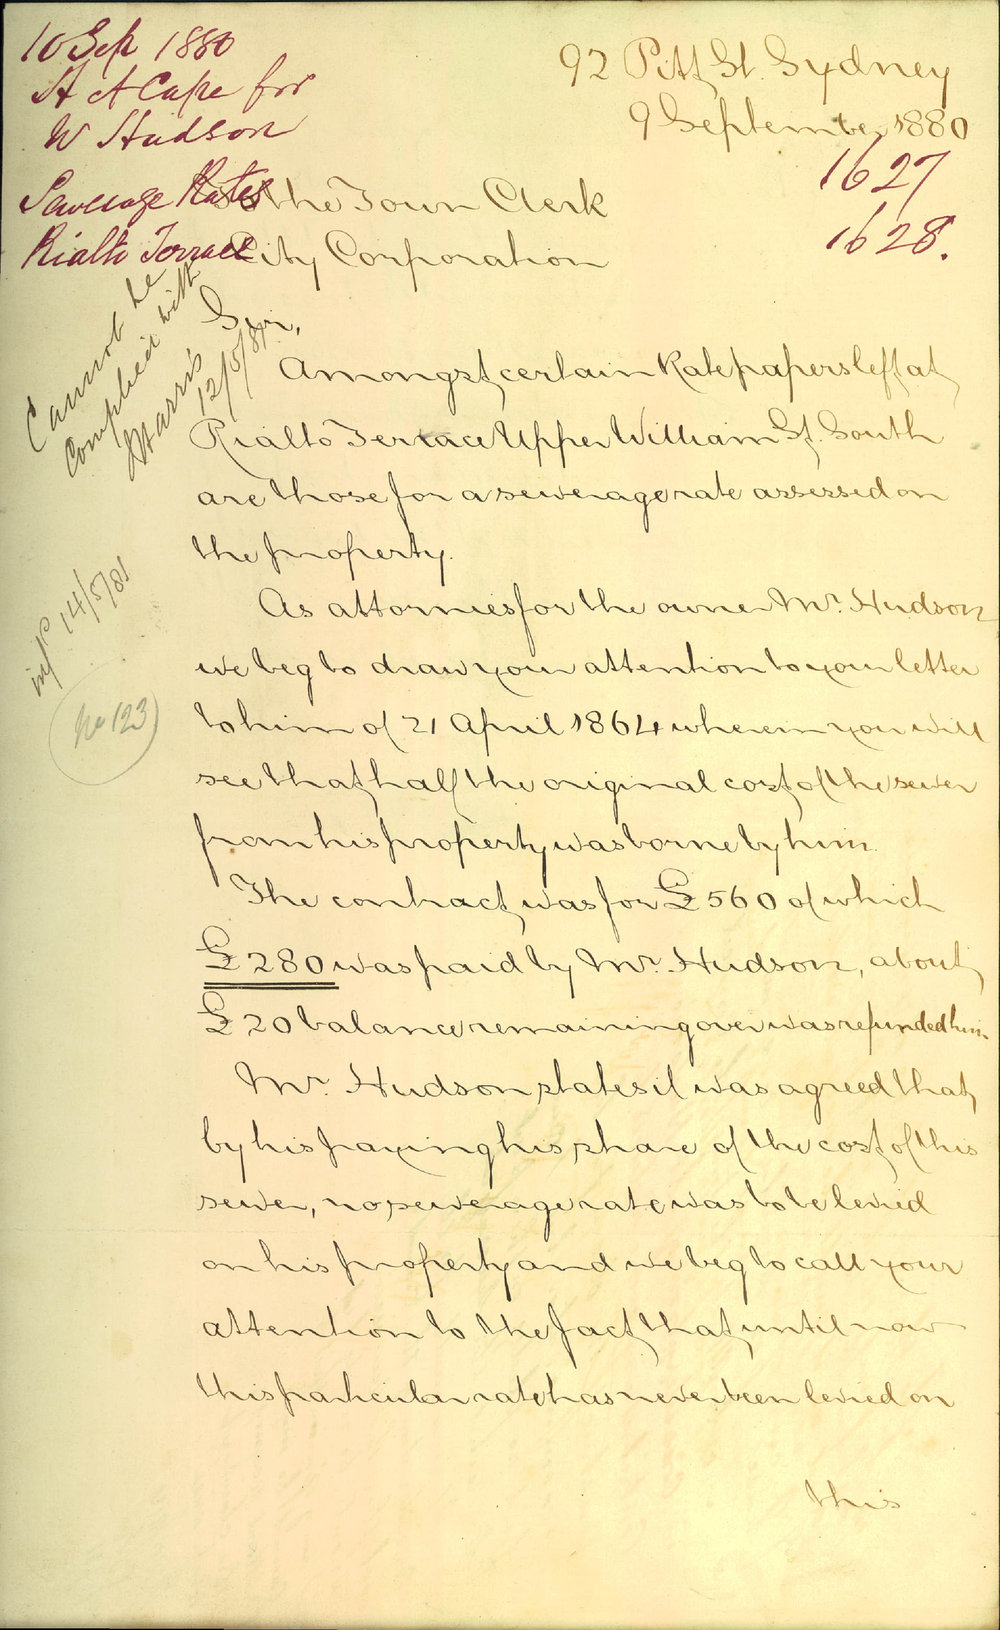 10 Sep 1880
A A Cape for
W Hudson
Sewerage Rates
Rialto Terrace
92 Pitt St. Sydney
9 September 1880
1627
1628.
To the Town Clerk
City Corporation
Cannot be
complied with
Harris
12/5/81
Sir,
Amongst certain Rate papers left at
Rialto Terrace Upper William St. South
are those for a sewerage rate assessed on
the property.
As attornies for the owner Mr. Hudson
we beg to draw your attention to your letter
to him of 21 April 1864 wherein you will
see that half the original cost of the sewer
from his property was borne by him.
The contract was for £560 of which
£280 was paid by Mr. Hudson, about
£20 balance remaining over was refunded him.
Mr. Hudson states it was agreed that
by his paying his share of the cost of this
sewer, no sewerage rate was to be levied
on his property and we beg to call your
attention to the fact that until now
this particular rate has never been levied on
this
infd 14/5/81
No 123